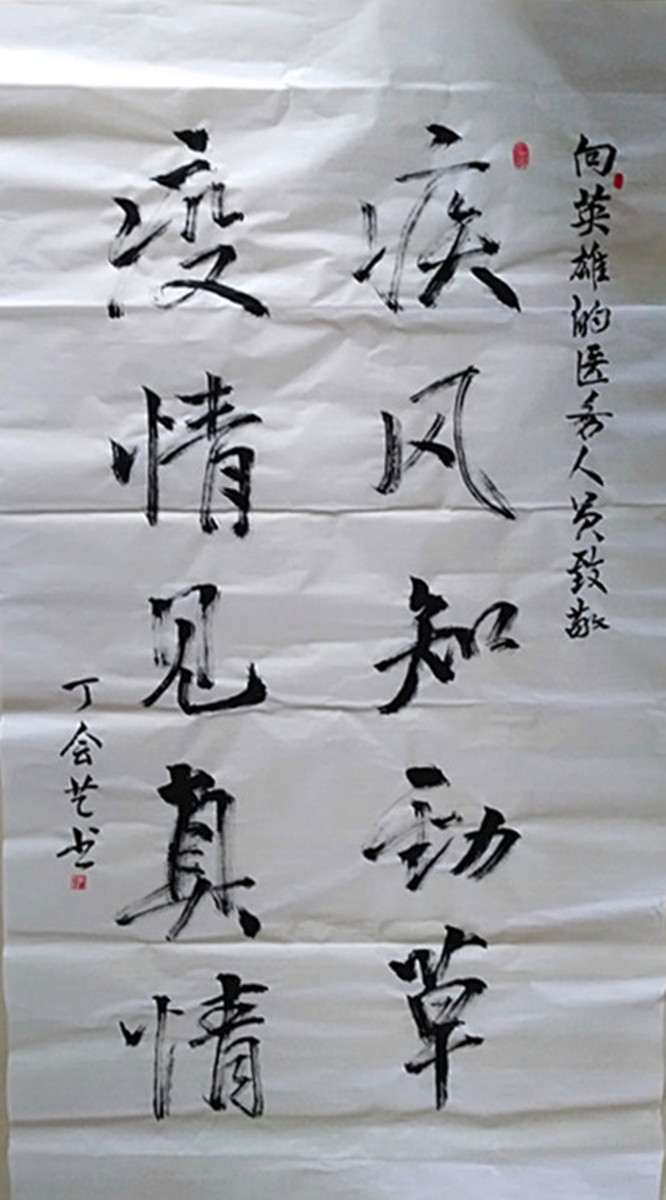 向英雄的医务人员致敬
疾风知劲草
疫情见真情
丁会艺书